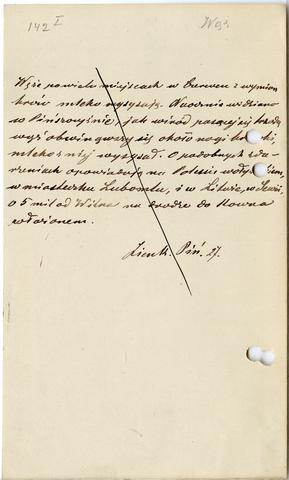 142 I Węż
Węże po wielu miejscach w Czerwcu z wymion
krów mleko wysysają. Naocznie widziano
w Pińszczyźnie, jak wśród pasącej się trzody
wąż obwinąwszy się około nogi krówki,
mleko z niej wysysał. O podobnych zda-
rzeniach opowiadają na Polesiu wołyńskiem,
w miasteczku Lubomlu, i w Litwie,
o 5 mil od Wilna na drodze do Kowna
położonem.
Zienk. Piń. 27.